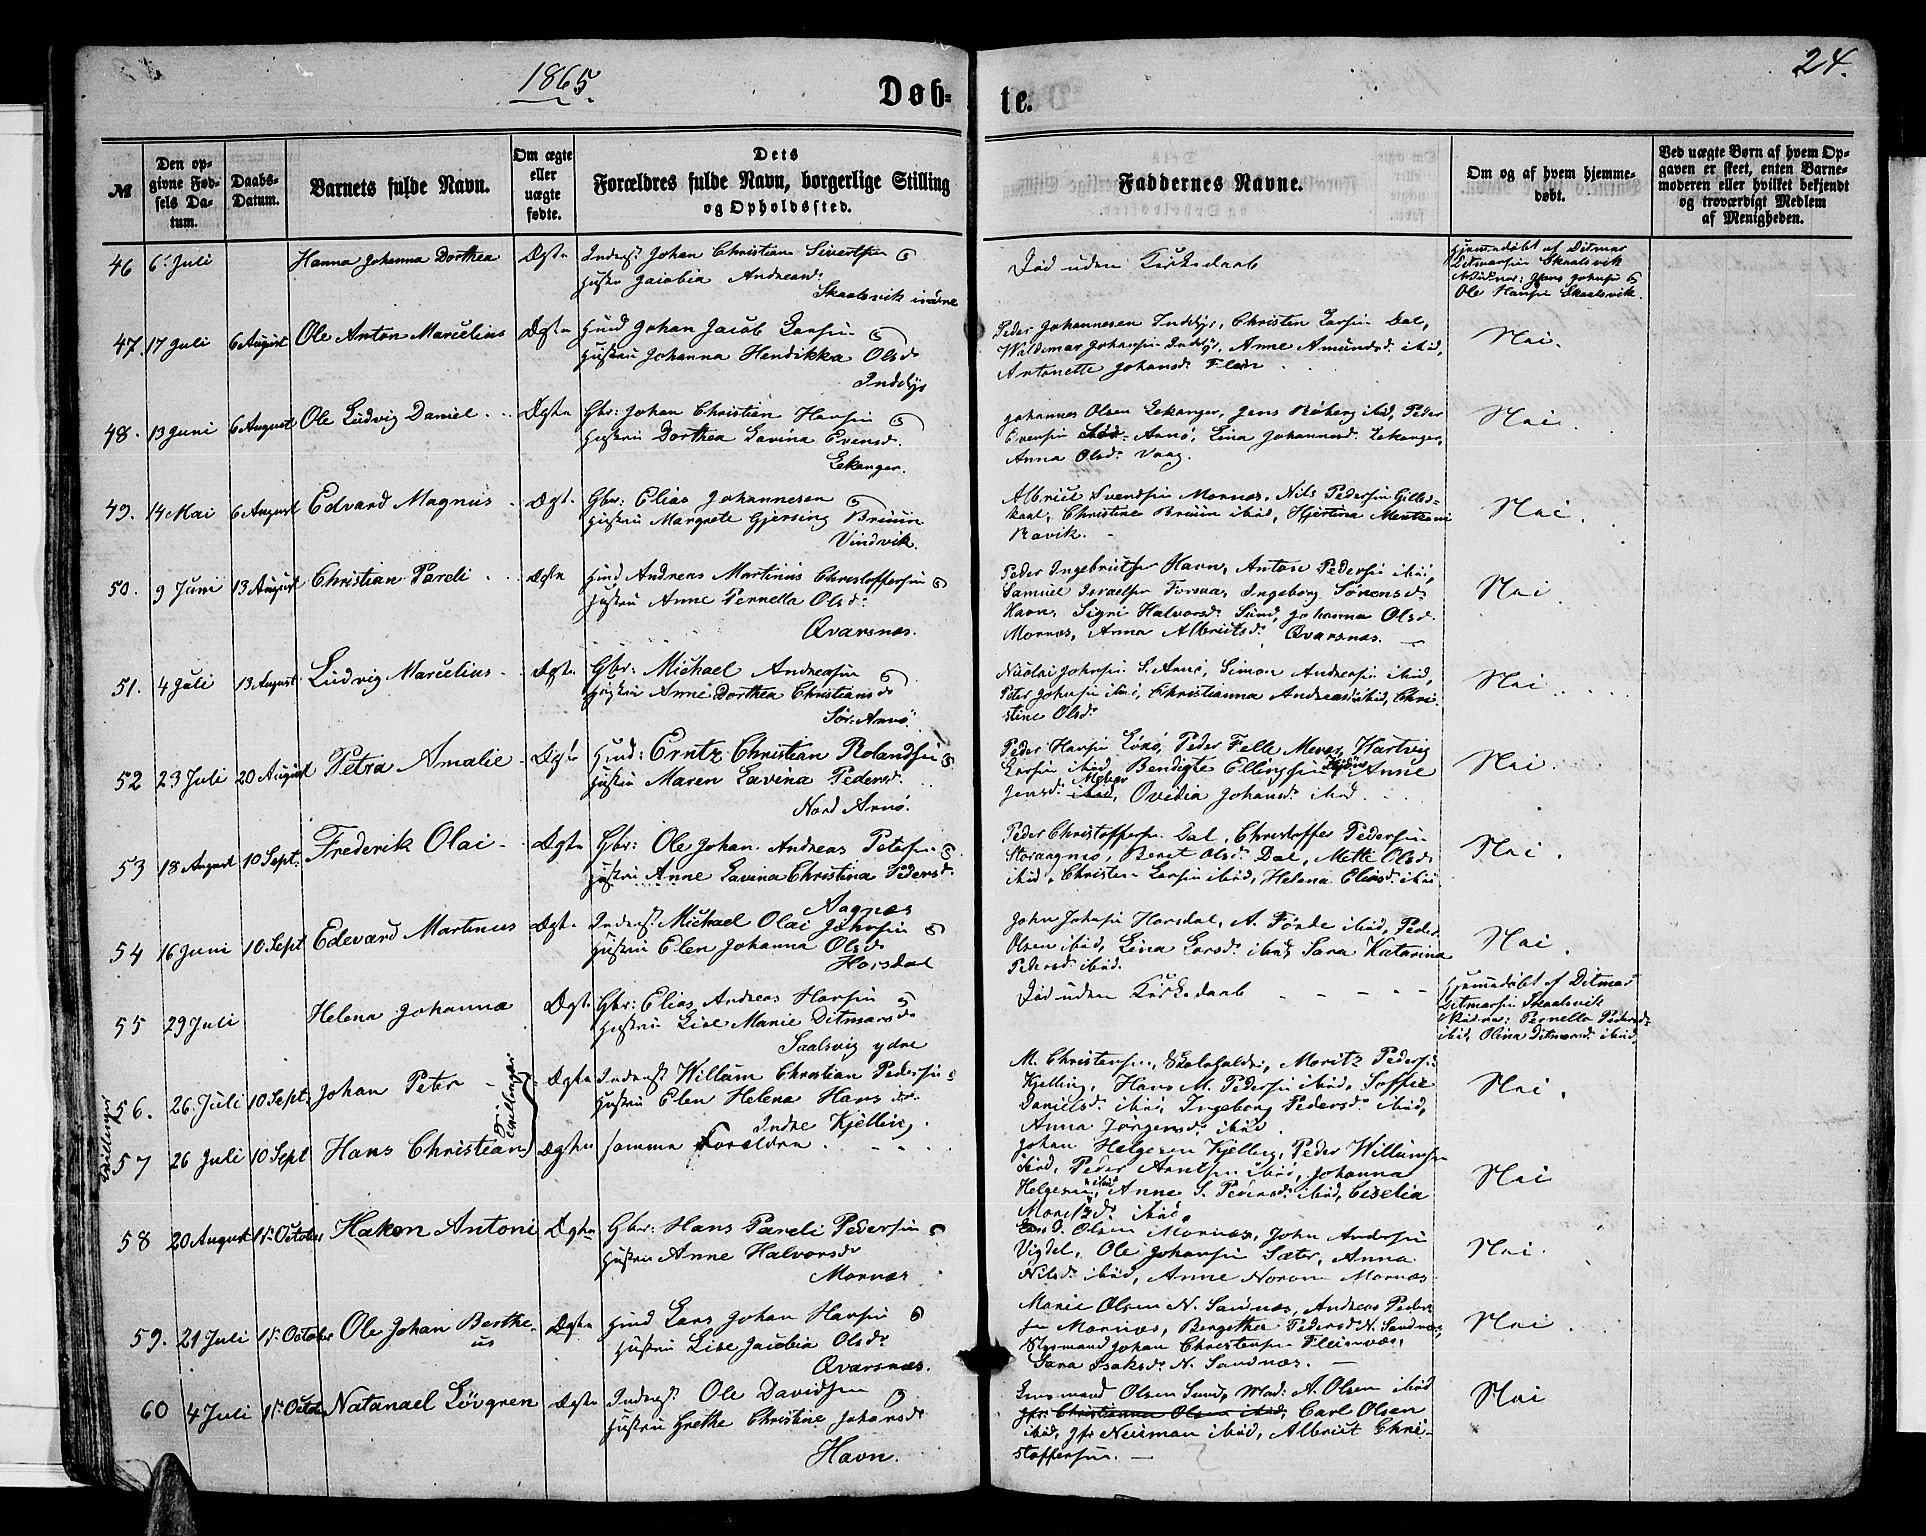 1865
24.
Døb-
te.
№
Den op-
givne Fød-
sels Da-
tum.
Daabs-
Datum.
Barnets fulde Navn.
Om ægte
eller
uægte
fødte.
Dets
Forældres fulde Navn, borgerlige Stilling
og Opholdssted.
Faddernes Navne.
Om og af hvem hjemme-
døbt.
Ved uægte Børn af hvem Op-
gaven er skeet, enten Barne-
moderen eller hvilket bekjendt
og troværdigt Medlem
af Menigheden.
46 6 Juli Hanna Johanna Dorthea Ægte Inderst Johan Christian Sivertsen og
Hustru Jacobia Andreasd.
Skaalsvik indre
Død uden Kirkedaab
Hjemmedøbt af Ditmar
Ditmarsen Skaalsvik
Ole Hansen Skaalsvik.
47. 17 Juli 6 August Ole Anton Marcelius Ægte Huusd Johan Jacob Larsen og
Hustru Johanna Hendikka Olsd.
Inddyr
Peder Johannesen Inddyr, Christen Larsen Dal,
Waldemar Johansen Inddyr, Anne Amundsd. ibid,
Antonette Johansd.
Nei.
48. 13 Juni 6 August Ole Ludvig Daniel Ægte Gbr: Johan Christian Hansen og
Hustru Dorthea Lavina Evensd.
Lekanger.
Johannes Olsen Lekanger, Jens Røberg ibid, Peder
Evensen Arnø, Lina Johannesd. Lekanger,
Anna Olsd. Vaag.
Nei.
49. 14 Mai 6 August Edvard Magnus Ægte Gbr: Elias Johannesen og
Hustru Margrete Gjersing Bruun
Vindvik.
Albrigt Svendsen Mornæs, Nils Pedersen Gilles-
kaal, Christine Bruun ibid, Hjertina Mentzoni
Ravik.
Nei.
50. 9 Juni 13 August Christian Pareli Ægte Huusd Andreas Martinus Christoffersen og
Hustru Anne Pernella Olsd.
Qvarsnæs.
Peder Ingebrigtsen Havn, Anton Pedersen ibid,
Samuel Israelsen Forsaa, Ingeborg Sørensd.
Havn, Sigri Halvorsd. Sund, Johanna Olsd.
Mornæs, Anna Albrigtsd. Qvarsnæs.
Nei.
51. 4 Juli 13 August Ludvig Marcelius Ægte Gbr: Michael Andreasen og
Hustru Anne Dorthea Christiansd.
Sør Arnø.
Nicolai Johnsen S. Arnø, Simon Andersen ibid,
Peter Johnsen ibid, Christianna Andreasd. ibid, Chri-
stine Olsd.
Nei.
52 23 Juli 20 August Petra Amalie Ægte Huusd: Erntz Christian Rolandsen og
Hustru Maren Lavina Pedersd.
Nord Arnø.
Peder Hansen Peder Felle Mevær, Hartvig
Larsen ibid, Bendigte Ellingsen Anne
Jensd. Mevær, Ovidia Johansd. ibid
Nei.
53 18 August 10 Sept: Frederik Olai Ægte Gbr: Ole Johan Andreas Petersen og
Hustru Anne Lavina Christina Pedersd.
Aagnæs
Peder Christoffersen Dal, Christoffer Pedersen
Beret Olsd. Dal, Mette Olsd.
ibid, Christen Larsen ibid, Helena Eliasd. ibid
Nei.
54 16 Juni 10 Sept Edevard Martinus Ægte Inderst Michael Olai Johnsen og
Hustru Elen Johanna Olsd.
Horsdal
John Johnsen Horsdal, A. Førde ibid, Peder
Olsen ibid, Lina Larsd. ibid, Sara Katarina
Pedersd. ibid.
Nei.
55 29 Juli Helena Johanna Ægte Gbr: Elias Andreas Hansen og
Hustru Lise Marie Ditmarsd.
Saalsvig ydre
Død uden Kirkedaab
Hjemmedøbt af Ditmar
Ditmarsen Skaalsvik
Pernella Pedersd.
ibid, Olina Ditmarsd. ibid.
Tvillinger
56. 26 Juli 10 Sept: Johan Peter Ægte Inderst Willum Christian Pedersen
Hustru Elen Helena Hansd.
Indre Kjelling.
M. Christensen, Moritz Pedersen
Kjelling, Hans M. Pedersen ibid, Soffie
Danielsd. ibid, Ingeborg Pedersd. ibid,
Anna Jørgensd. ibid.
Nei.
Tvillinger
57 26 Juli 10 Sept Hans Christian Ægte samme Forældre.
Johan Helgesen Kjelling, Peder Willumsen
ibid, Peder Arntsen ibid, Johanna
Helgesen ibid, Anne S. Pedersd. ibid, Ciselia
Moritzd. ibid.
Nei
58 20 August 1st October Hakon Antoni Ægte Gbr: Hans Pareli Pedersen og
Hustru Anne Halvorsd.
Mornæs
Olsen Mornæs, John Andersen
Vigdel, Ole Johansen Sæter, Anna
Nilsd. ibid, Anne Norum Mornæs
Nei.
59. 21 Juli 1st October Ole Johan Berthe-
us Ægte Huusd Lars Johan Hansen og
Hustru Lise Jacobia Olsd.
Qvarsnæs.
Marie Olsen N. Sandnæs, Andreas Peder-
sen Mornæs, Bergitha Pedersd. N. Sandnæs,
Styrmand Johan Christensen Fleinvær,
Sara Isaksd. N. Sandnæs.
Nei.
60 4 Juli 1st Octob. Natanael Løvgren Ægte Inderst Ole Davidsen og
Hustru Grethe Christine Johansd.
Havn.
Olsen Sund, Mad: A. Olsen ibid
Jfr: Christianna Olsen ibid, Carl Olsen
ibid, Jfr Neuman ibid, Albrigt Chri-
stoffersen.
Nei